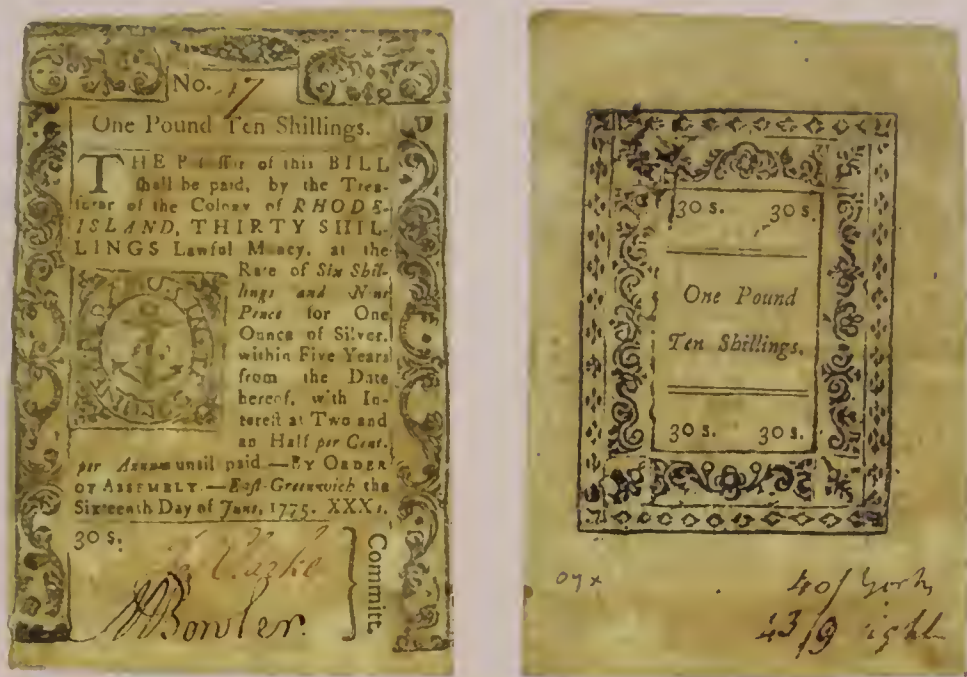 No. 17
One Pound Ten Shillings.
THE Possessor of this BILL
shall be paid, by the Trea-
surer of the Colony of RHODE-
ISLAND, THIRTY SHIL-
LINGS Lawful Money, at the
Rate of Six Shil-
lings and Nine
Pence for One
Ounce of Silver,
within Five Years
from the Date
hereof, with In-
terest at Two and
an Half per Cent.
per Annum until paid.—BY ORDER
OF ASSEMBLY.—East-Greenwich the
Sixteenth Day of June, 1775. XXXs.
30 s.
Clarke
Bowler.
Committ.
30 s. 30 s.
One Pound
Ten Shillings.
30 s. 30 s.
40/ York
43/9